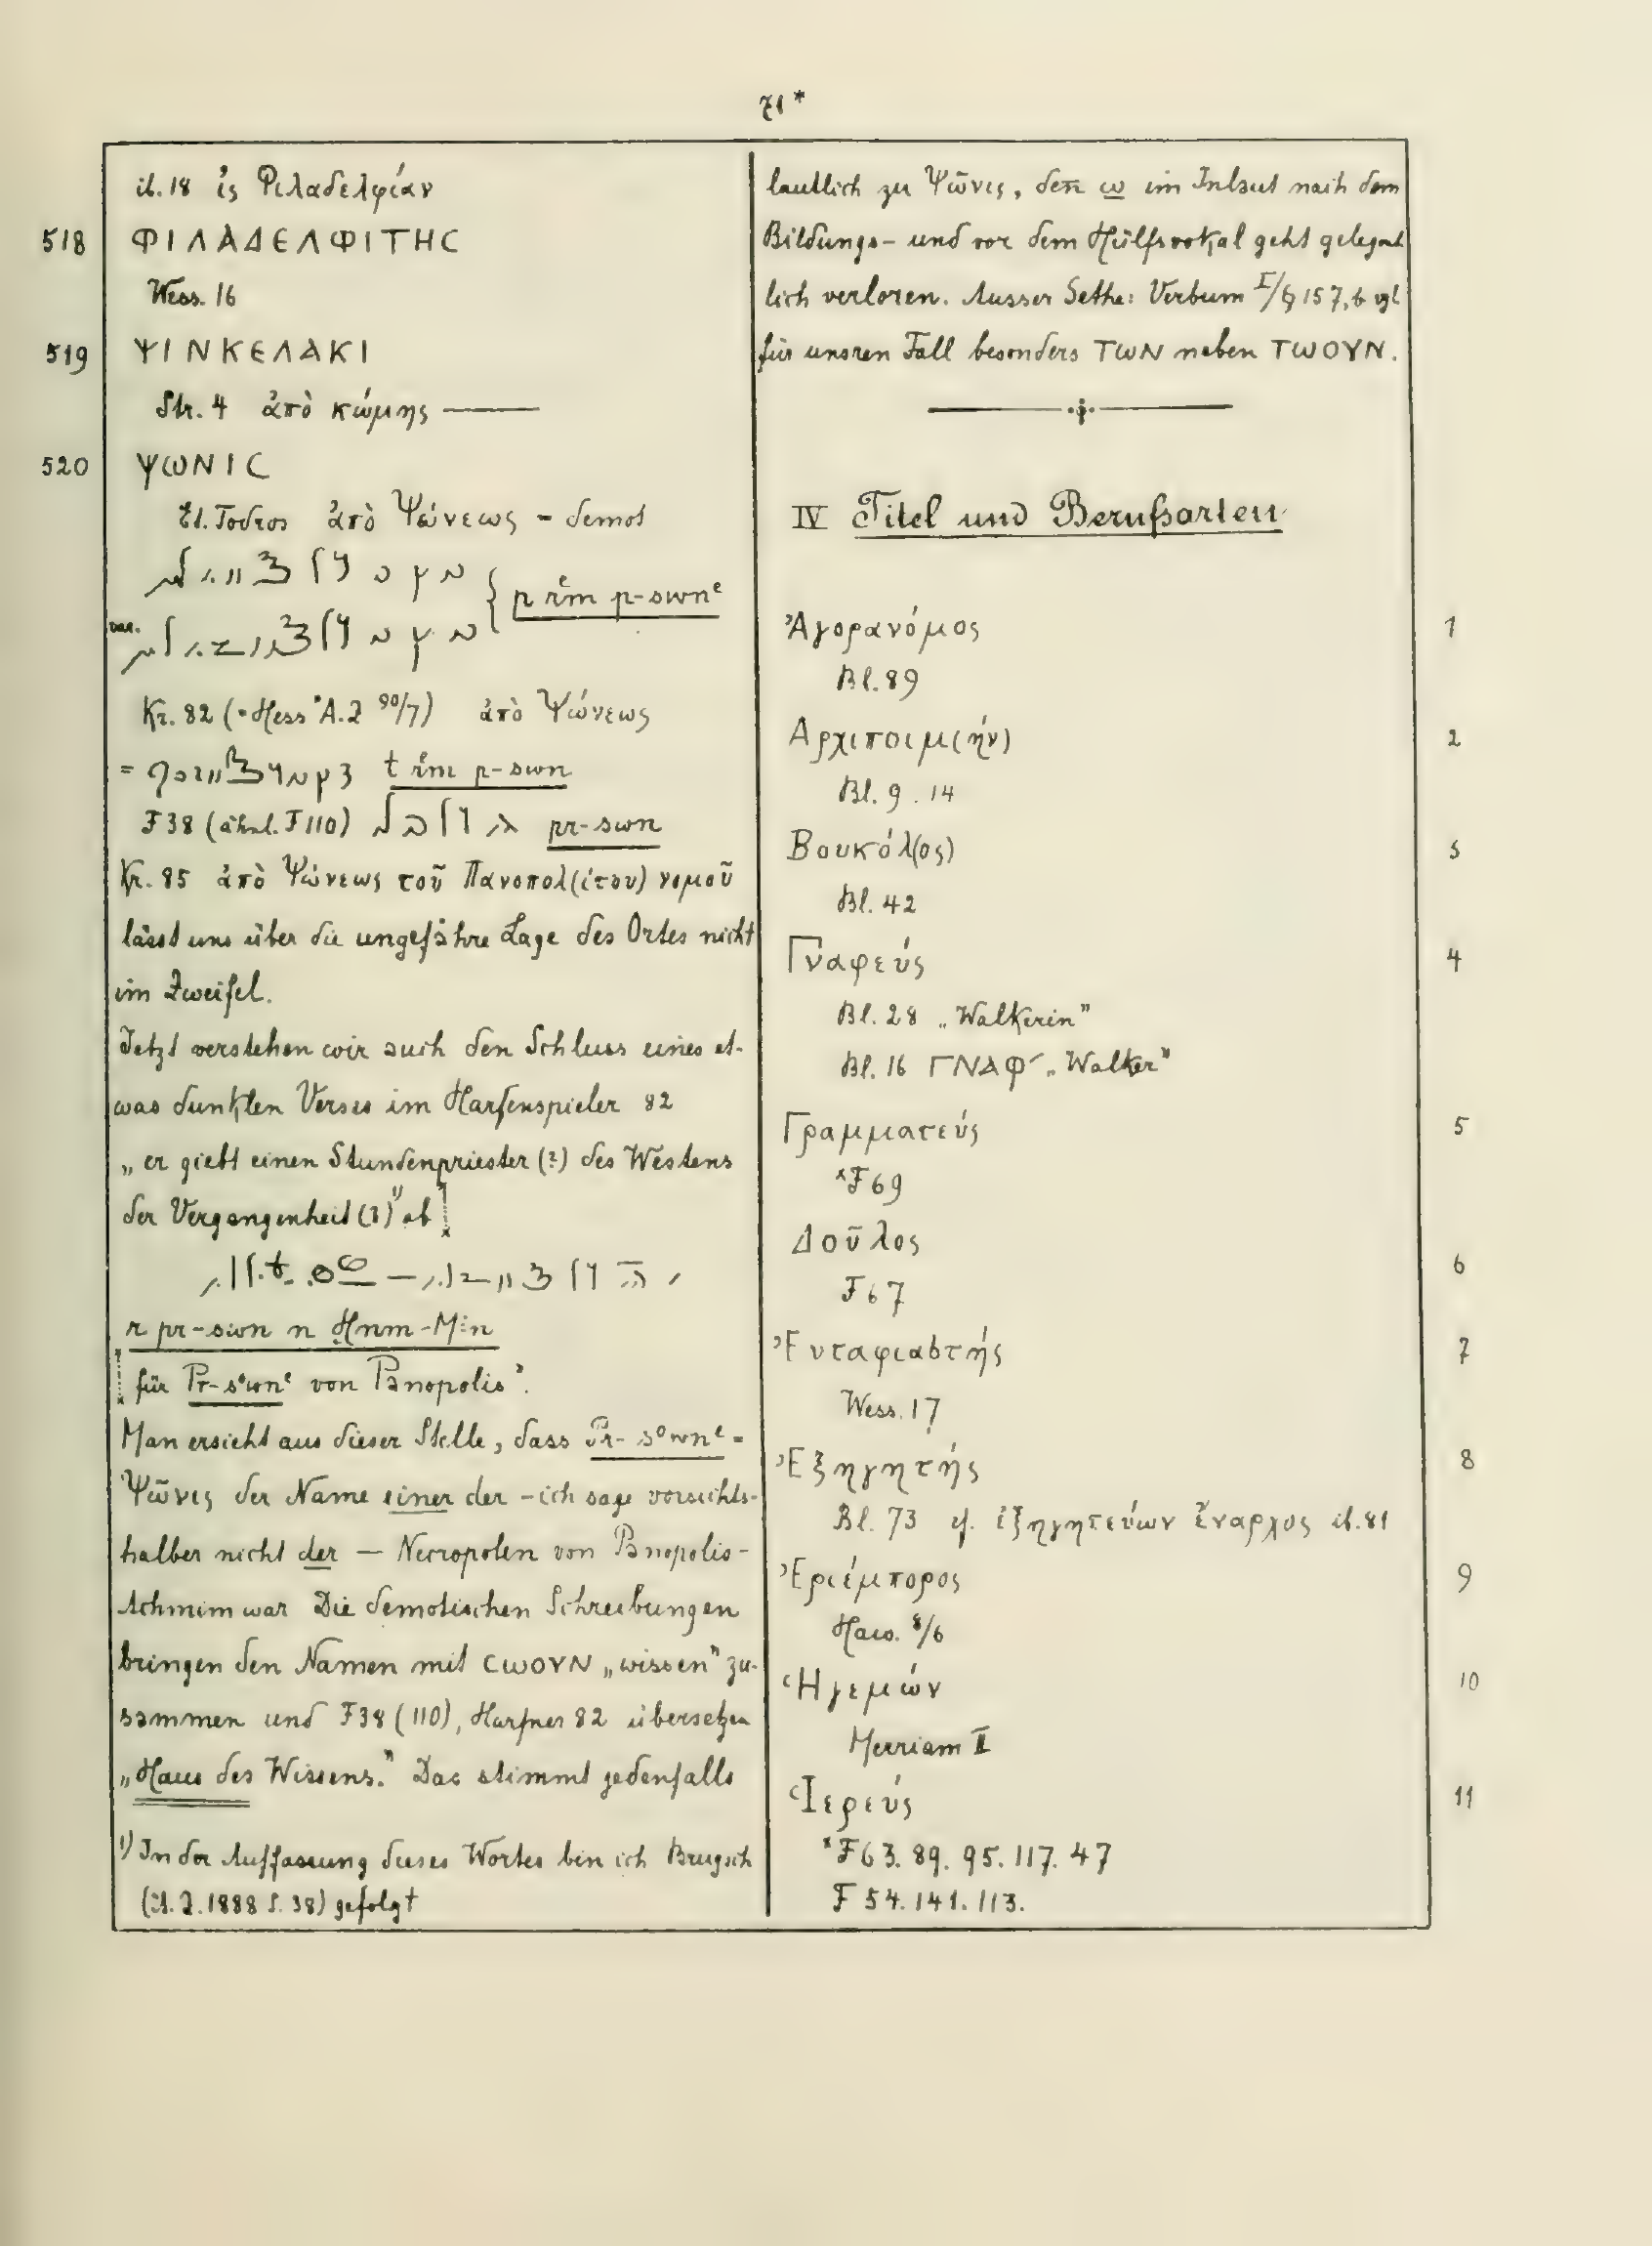 71*
ib. 18 ἰς Φιλαδελφίαν
518 ΦΙΛΑΔΕΛΦΙΤΗC
Wess. 16
519 ΨΙΝΚΕΛΑΚΙ
Str. 4 ἀπὸ κώμης ——
520 ΨωΝΙC
Et. Todros ἀπὸ Ψώνεως = demot
p rm̓ p-swnᵉ
var.
Kr. 82 (= Hess Ä.Z 90/7) ἀπὸ Ψώνεως
= t rm̓ p-swn
F 38 (ähnl. F 110) pr-swn
Kr. 85 ἀπὸ Ψώνεως τοῦ Πανοπολ(ίτου) νομοῦ
lässt uns über die ungefähre Lage des Ortes nicht
im Zweifel.
Jetzt verstehen wir auch den Schluss eines et-
was dunklen Verses im Harfenspieler 82
„er giebt einen Stundenpriester (?) des Westens
der Vergangenheit (?)¹⁾ ab
r pr-swn n Ḫnm-Min
für Pr-sᵒwnᵉ von Panopolis".
Man ersieht aus dieser Stelle, dass Pr-sᵒwnᵉ =
Ψῶνις der Name einer der – ich sage vorsichts-
halber nicht der — Necropolen von Panopolis-
Achmim war Die demotischen Schreibungen
bringen den Namen mit CωΟΥΝ „wissen" zu-
sammen und F38 (110), Harfner 82 übersetzen
„Haus des Wissens." Das stimmt jedenfalls
¹⁾ In der Auffassung dieses Wortes bin ich Brugsch
(Ä.Z. 1888 S. 38) gefolgt
lautlich zu Ψῶνις, den̄ ω im Inlaut nach dem
Bildungs- und vor dem Hülfsvokal geht gelegent
lich verloren. Ausser Sethe: Verbum I/§ 157,6 vgl
für unsren Fall besonders ΤωΝ neben ΤωΟΥΝ.
IV Titel und Berufsarten
Ἀγορανόμος 1
Bl. 89
Αρχιποιμ(ήν) 2
Bl. 9. 14
Βουκόλ(ος) 3
Bl. 42
Γναφεύς 4
Bl. 28 „Walkerin"
Bl. 16 ΓΝΑΦ´ „Walker"
Γραμματεύς 5
*F 69
Δοῦλος 6
F 67
Ἐνταφιαστής 7
Wess. 17
Ἐξηγητής 8
Bl. 73 cf. ἐξηγητεύων ἔναρχος ib. 81
Ἐριέμπορος 9
Haw. 8/6
Ἡγεμών 10
Merriam II
Ἱερεύς 11
*F 63. 89. 95. 117. 47
F 54. 141. 113.